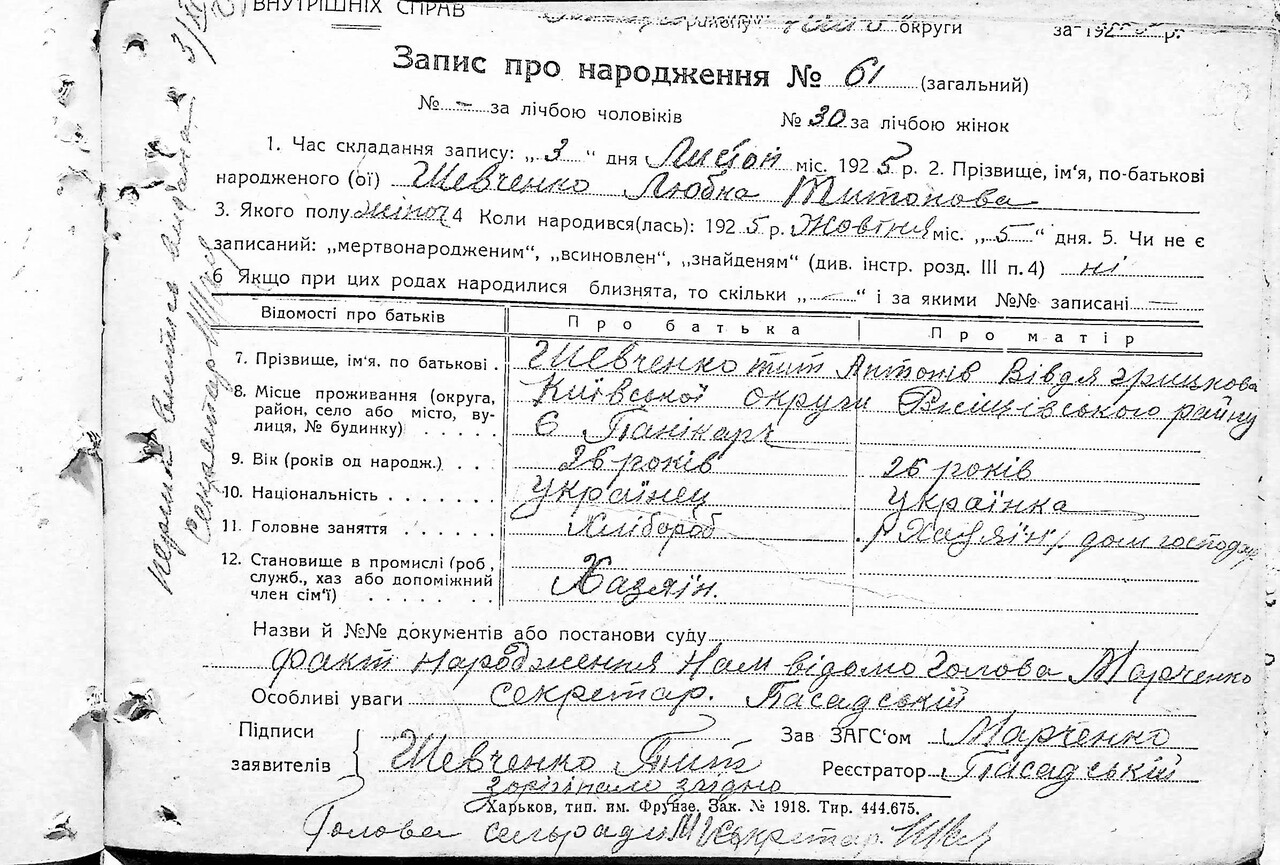 ВНУТРІШНІХ СПРАВ
району округи за 192 р.
Запис про народження № 61 (загальний)
№ – за лічбою чоловіків № 30 за лічбою жінок
1. Час складання запису: „ 3 “ дня Листоп міс. 1925 р. 2. Прізвище, ім'я, по-батькові
народженого (ої) Шевченко Любка Титонова
3. Якого полу жіноч 4 Коли народився(лась): 1925 р. Жовтня міс. „ 5 “ дня. 5. Чи не є
записаний: „мертвонародженим“, „всиновлен“, „знайденям“ (див. інстр. розд. III п. 4) ні
6 Якщо при цих родах народилися близнята, то скільки „ – “ і за якими №№ записані —
Відомості про батьків Про батька Про матір
7. Прізвище, ім'я, по батькові . Шевченко тит Антонів Вівдя Грицкова
8. Місце проживання (округа, район, село або місто, вулиця, № будинку) Київської округи району
Є Панікарч
9. Вік (років од народж.) . . . 26 років 26 років
10. Національність . . . . . . . Українец Українка
11. Головне заняття . . . . . . Хлібороб Хазяїн дом господар
12. Становище в промислі (роб., Хазяїн.
служб., хаз або допоміжний
член сім'ї) . . . . . . .
Назви й №№ документів або постанови суду
факт народження нам відомо Голова Марченко
Особливі уваги секретар. Пасадській
Підписи Зав ЗАГС'ом Марченко
заявителів Шевченко Тит Реєстратор Пасадській
з орігіналом згідно
Харьков, тип. им. Фрунзе. Зак. № 1918. Тир. 444.675.
Голова сельради Секретар